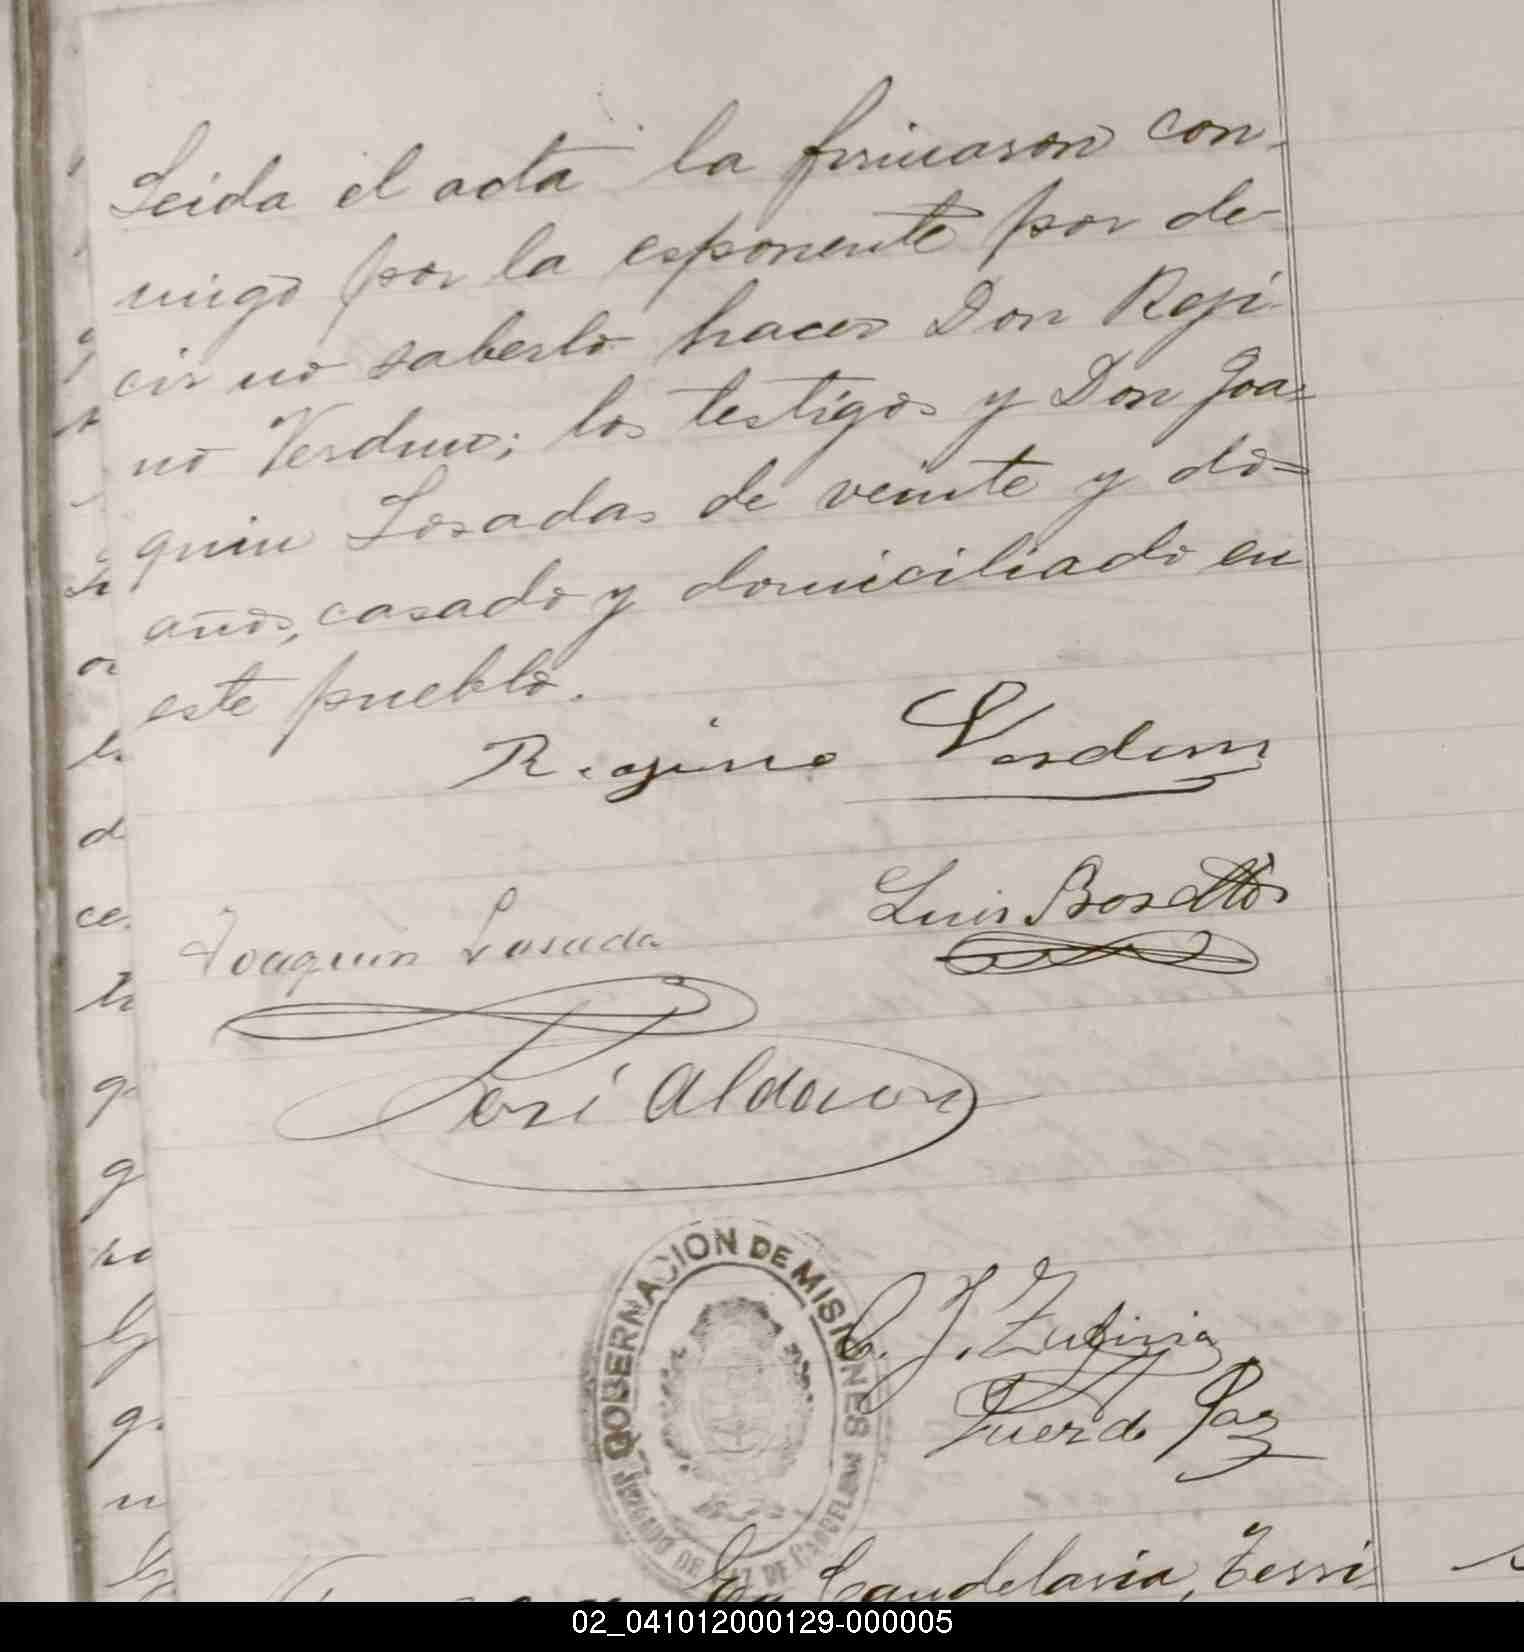 Leida el acta la firmaron con-
migo por la esponente por de-
cir no saberlo hacer Don Reji-
no Verdun; los testigos y Don Joa=
quin Losadas de veinte y dos=
años, casado y domiciliado en
este pueblo.
Regino Verdun
Luis Bosetti
Joaquin Losada
José Alda
GOBERNACION DE MISIONES
JUZGADO DE PAZ DE CANDELARIA
C. J. Zubiria
Juez de Paz
En Candelaria, Terri-
02_041012000129-000005